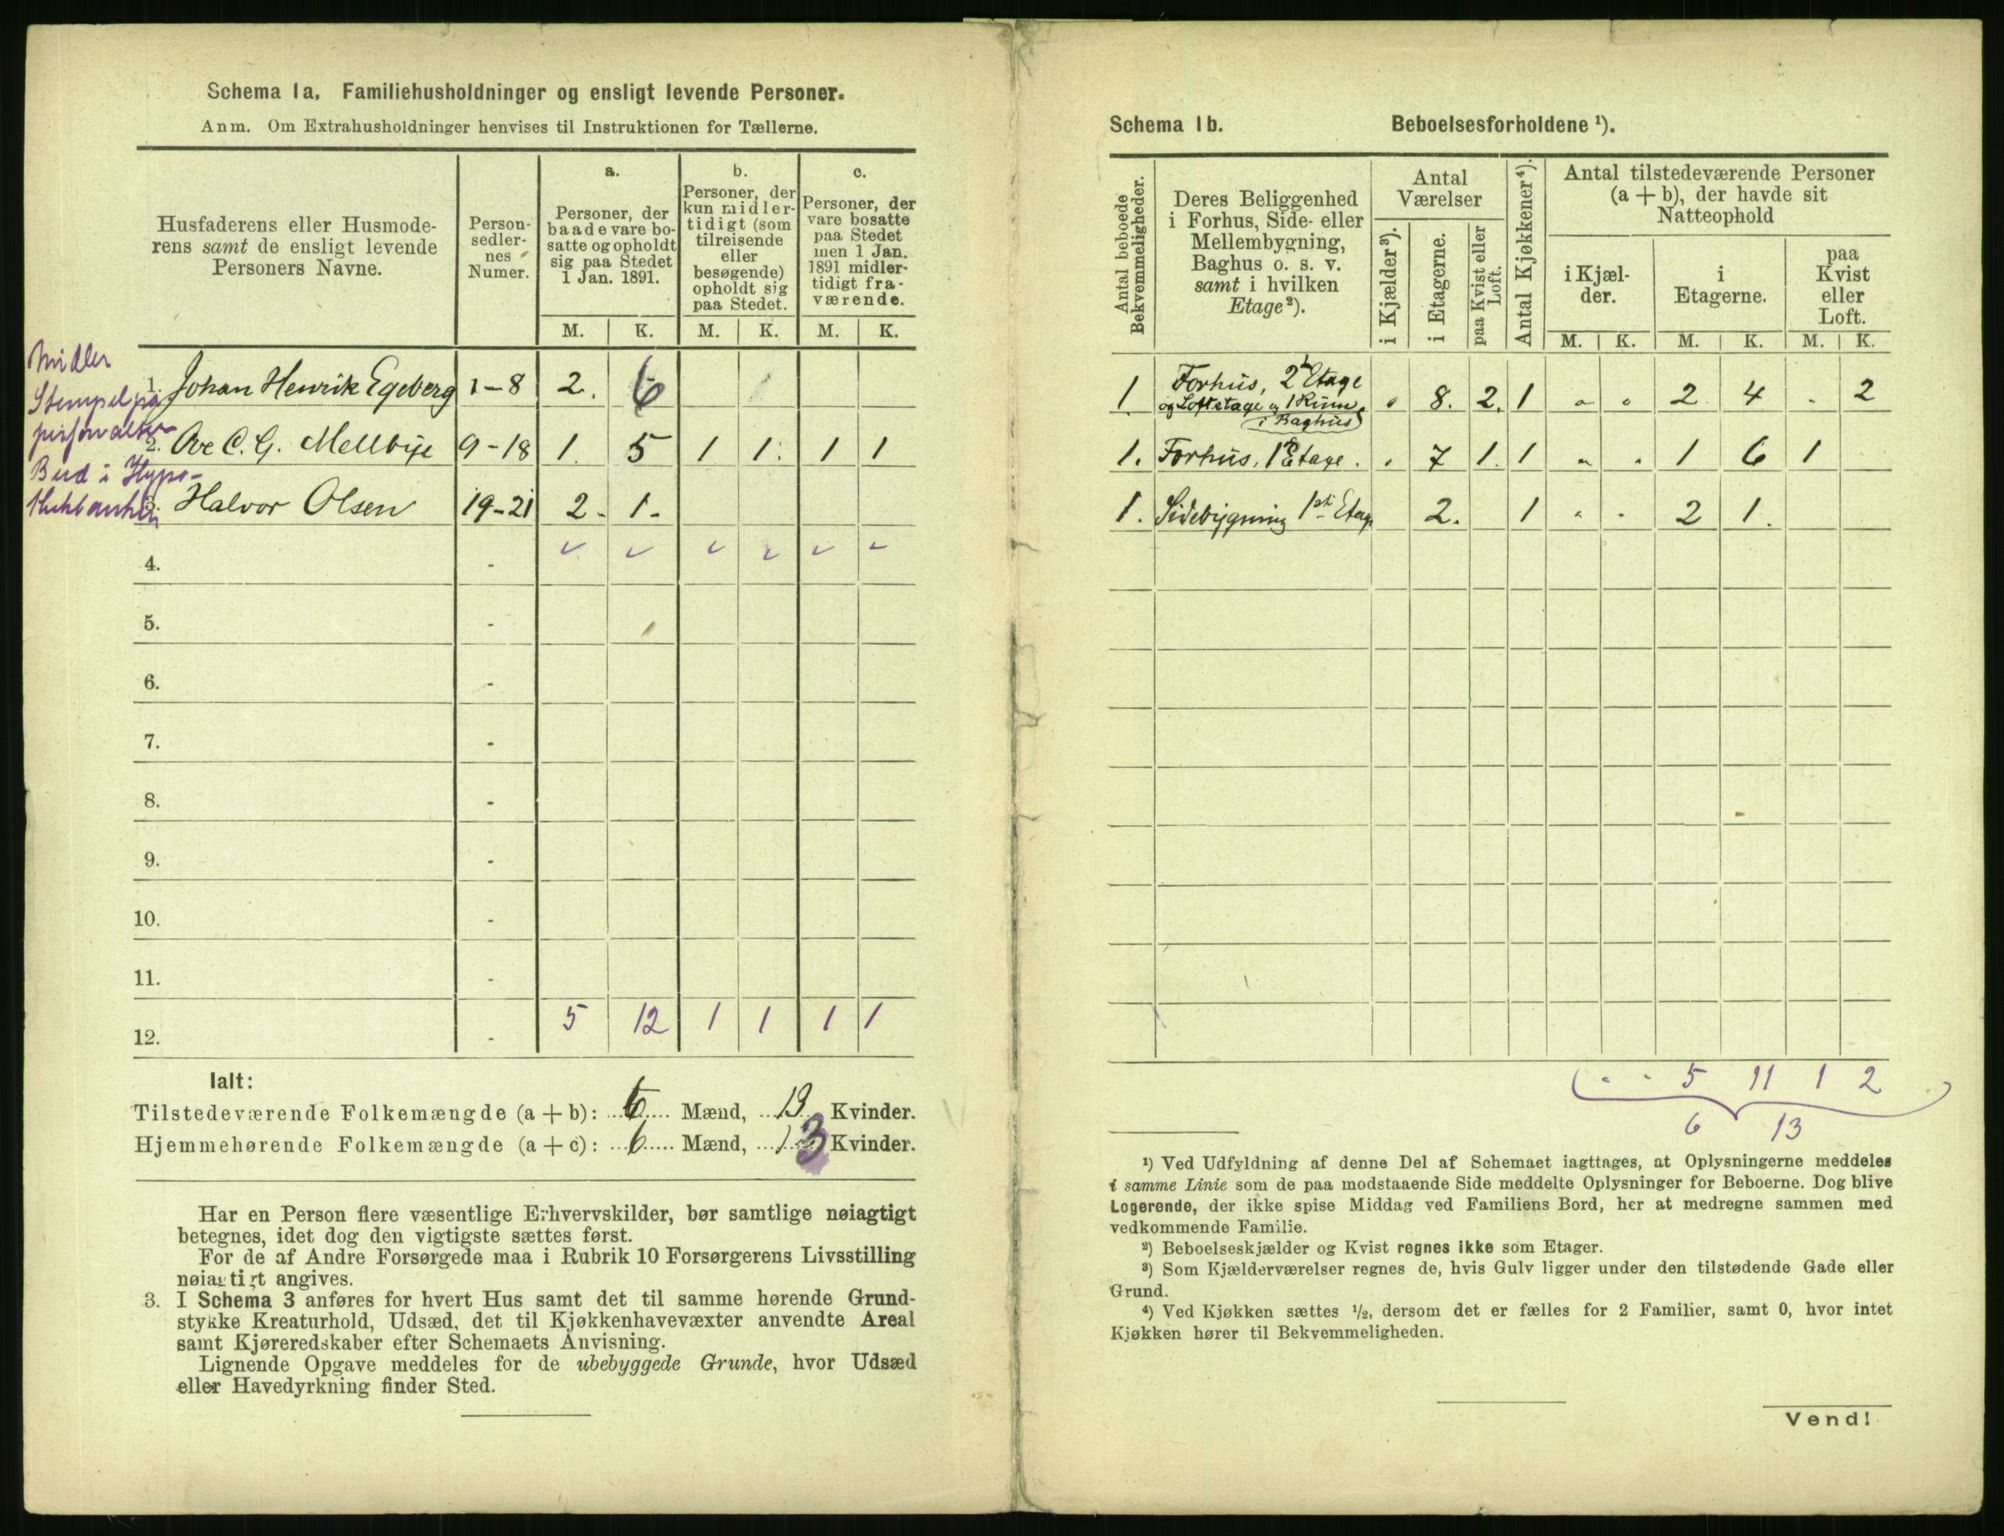 Schema 1a. Familiehusholdninger og ensligt levende Personer.
Anm. Om Extrahusholdninger henvises til Instruktionen for Tællerne.
Husfaderens eller Husmoderens samt de ensligt levende Personers Navne.
Personsedlernes Numer.
a.
Personer, der baade vare bosatte og opholdt sig paa Stedet 1 Jan. 1891.
b.
Personer, der kun midlertidigt (som tilreisende eller besøgende) opholdt sig paa Stedet.
c.
Personer, der vare bosatte paa Stedet men 1 Jan. 1891 midlertidigt fraværende.
M. K. M. K. M. K.
Midler
Stempelpa
pirforvalter
Bud i Hypo-
thekbanken
1. Johan Henrik Egeberg 1-8 2. 6
2. Ove C. G. Mellbye 9-18 1. 5 1 1. 1 1
3. Halvor Olsen 19-21 2- 1-
4. -
5. -
6. -
7. -
8. -
9. -
10. -
11. -
5 12 1 1 1 1
12. -
Ialt:
Tilstedeværende Folkemængde (a + b): 6 Mænd, 13 Kvinder.
Hjemmehørende Folkemængde (a + c): 6 Mænd, 13 Kvinder.
Har en Person flere væsentlige Erhvervskilder, bør samtlige nøiagtigt
betegnes, idet dog den vigtigste sættes først.
For de af Andre Forsørgede maa i Rubrik 10 Forsørgerens Livsstilling
nøiagtigt angives.
3. I Schema 3 anføres for hvert Hus samt det til samme hørende Grund-
stykke Kreaturhold, Udsæd, det til Kjøkkenhavevæxter anvendte Areal
samt Kjøreredskaber efter Schemaets Anvisning.
Lignende Opgave meddeles for de ubebyggede Grunde, hvor Udsæd
eller Havedyrkning finder Sted.
Schema 1b. Beboelsesforholdene ¹).
Antal beboede Bekvemmeligheder.
Deres Beliggenhed i Forhus, Side- eller Mellembygning, Baghus o. s. v. samt i hvilken Etage ²).
Antal Værelser
i Kjælder ³).
i Etagerne.
paa Kvist eller Loft.
Antal Kjøkkener ⁴).
Antal tilstedeværende Personer (a + b), der havde sit Natteophold
i Kjælder.
i Etagerne.
paa Kvist eller Loft.
M. K. M. K. M. K.
1. Forhus, 2 Etage 8. 2. 1 2 4 . 2
og Loftetage og 1 Rum
i Baghus
1. Forhus, 1 Etage. 7 1. 1 1 6 1
1. Sidebygning 1ste Etage 2. 1 2 1.
5 11 1 2
6 13
¹) Ved Udfyldning af denne Del af Schemaet iagttages, at Oplysningerne meddeles
i samme Linie som de paa modstaaende Side meddelte Oplysninger for Beboerne. Dog blive
Logerende, der ikke spise Middag ved Familiens Bord, her at medregne sammen med
vedkommende Familie.
²) Beboelseskjælder og Kvist regnes ikke som Etager.
³) Som Kjælderværelser regnes de, hvis Gulv ligger under den tilstødende Gade eller
Grund.
⁴) Ved Kjøkken sættes ½, dersom det er fælles for 2 Familier, samt 0, hvor intet
Kjøkken hører til Bekvemmeligheden.
Vend!